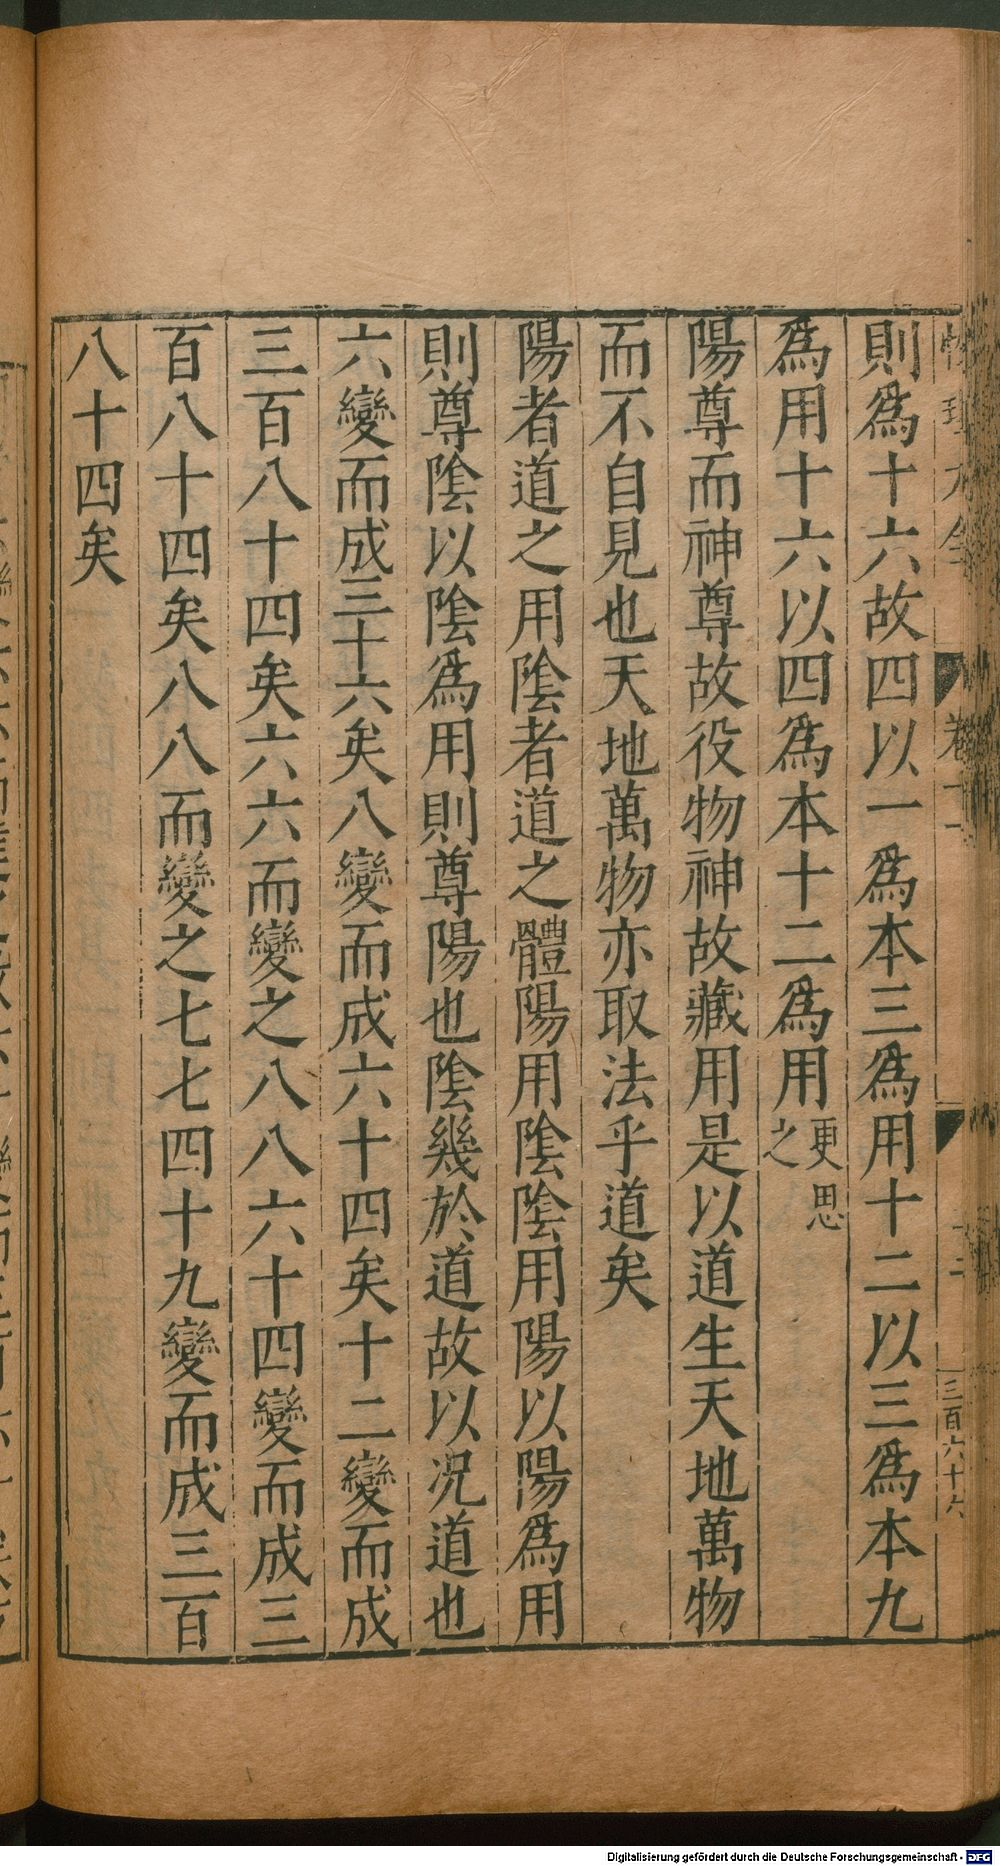 則爲十六故四以一爲本三爲用十二以三爲本九
爲用十六以四爲本十二爲用更思之
陽尊而神尊故役物神故藏用是以道生天地萬物
而不自見也天地萬物亦取法乎道矣
陽者道之用陰者道之體陽用陰陰用陽以陽爲用
則尊陰以陰爲用則尊陽也陰幾於道故以况道也
六變而成三十六矣八變而成六十四矣十二變而成
三百八十四矣六六而變之八八六十四變而成三
百八十四矣八八而變之七七四十九變而成三百
八十四矣
三百六十六
Digitalisierung gefördert durch die Deutsche Forschungsgemeinschaft - DFG